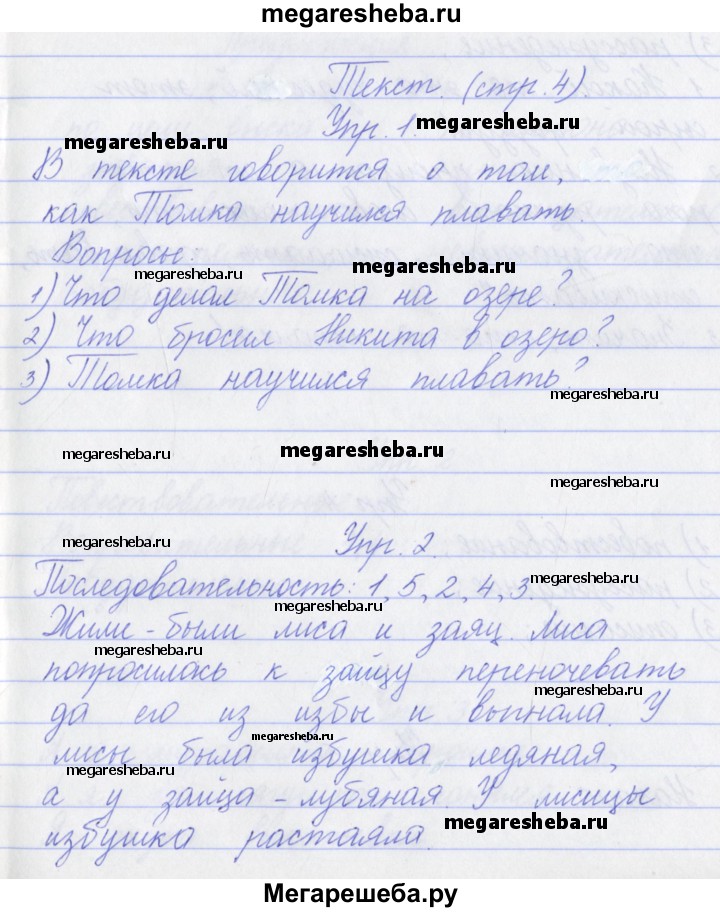 megaresheba.ru
Текст. (стр. 4)
Упр. 1.
megaresheba.ru megaresheba.ru
В тексте говорится о том,
как Томка научился плавать.
Вопросы:
megaresheba.ru megaresheba.ru
1) Что делал Томка на озере?
2) Что бросил Никита в озеро?
3) Томка научился плавать?
megaresheba.ru
megaresheba.ru megaresheba.ru
megaresheba.ru
Упр. 2.
Последовательность: 1, 5, 2, 4, 3.
megaresheba.ru
Жили-были лиса и заяц. Лиса
megaresheba.ru
попросилась к зайцу переночевать
megaresheba.ru
да его из избы и выгнала. У
megaresheba.ru
лисы была избушка ледяная,
megaresheba.ru
а у зайца - лубяная. У лисицы
megaresheba.ru
избушка растаяла.
Мегарешеба.ру